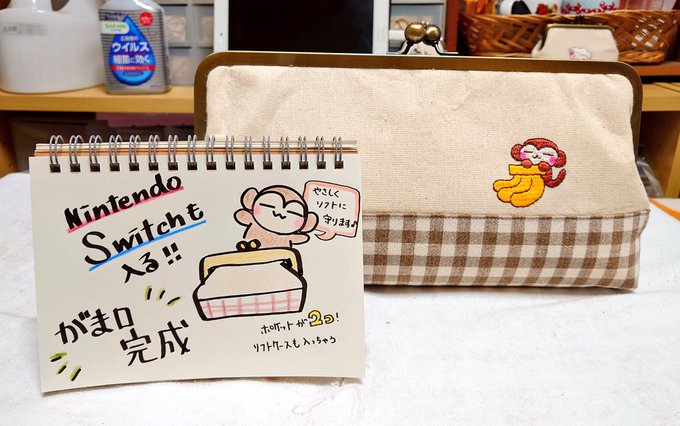 Nintendo
Switchも
入る!!
がま口
完成
やさしく
ソフトに
守ります♪
ポケットが2コ!
ソフトケースも入っちゃう
ウイルス
細菌に効く